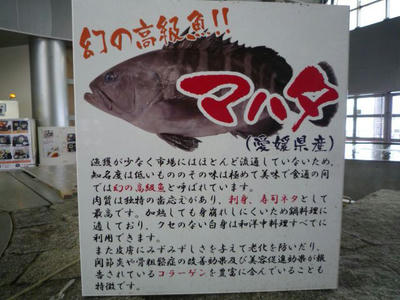 幻の高級魚!!
マハタ
(愛媛県産)
漁獲が少なく市場にはほとんど流通していないため、
知名度は低いもののその味は極めて美味で食通の間
では幻の高級魚と呼ばれています。
肉質は独特の歯応えがあり、刺身、寿司ネタとして
最高です。加熱しても身崩れしにくいため鍋料理に
適しており、クセのない白身は和洋中料理すべてに
利用できます。
また皮膚にみずみずしさを与えて老化を防いだり、
関節炎や骨粗鬆症の改善効果及び美容促進効果が報
告されているコラーゲンを豊富に含んでいることも
特徴です。